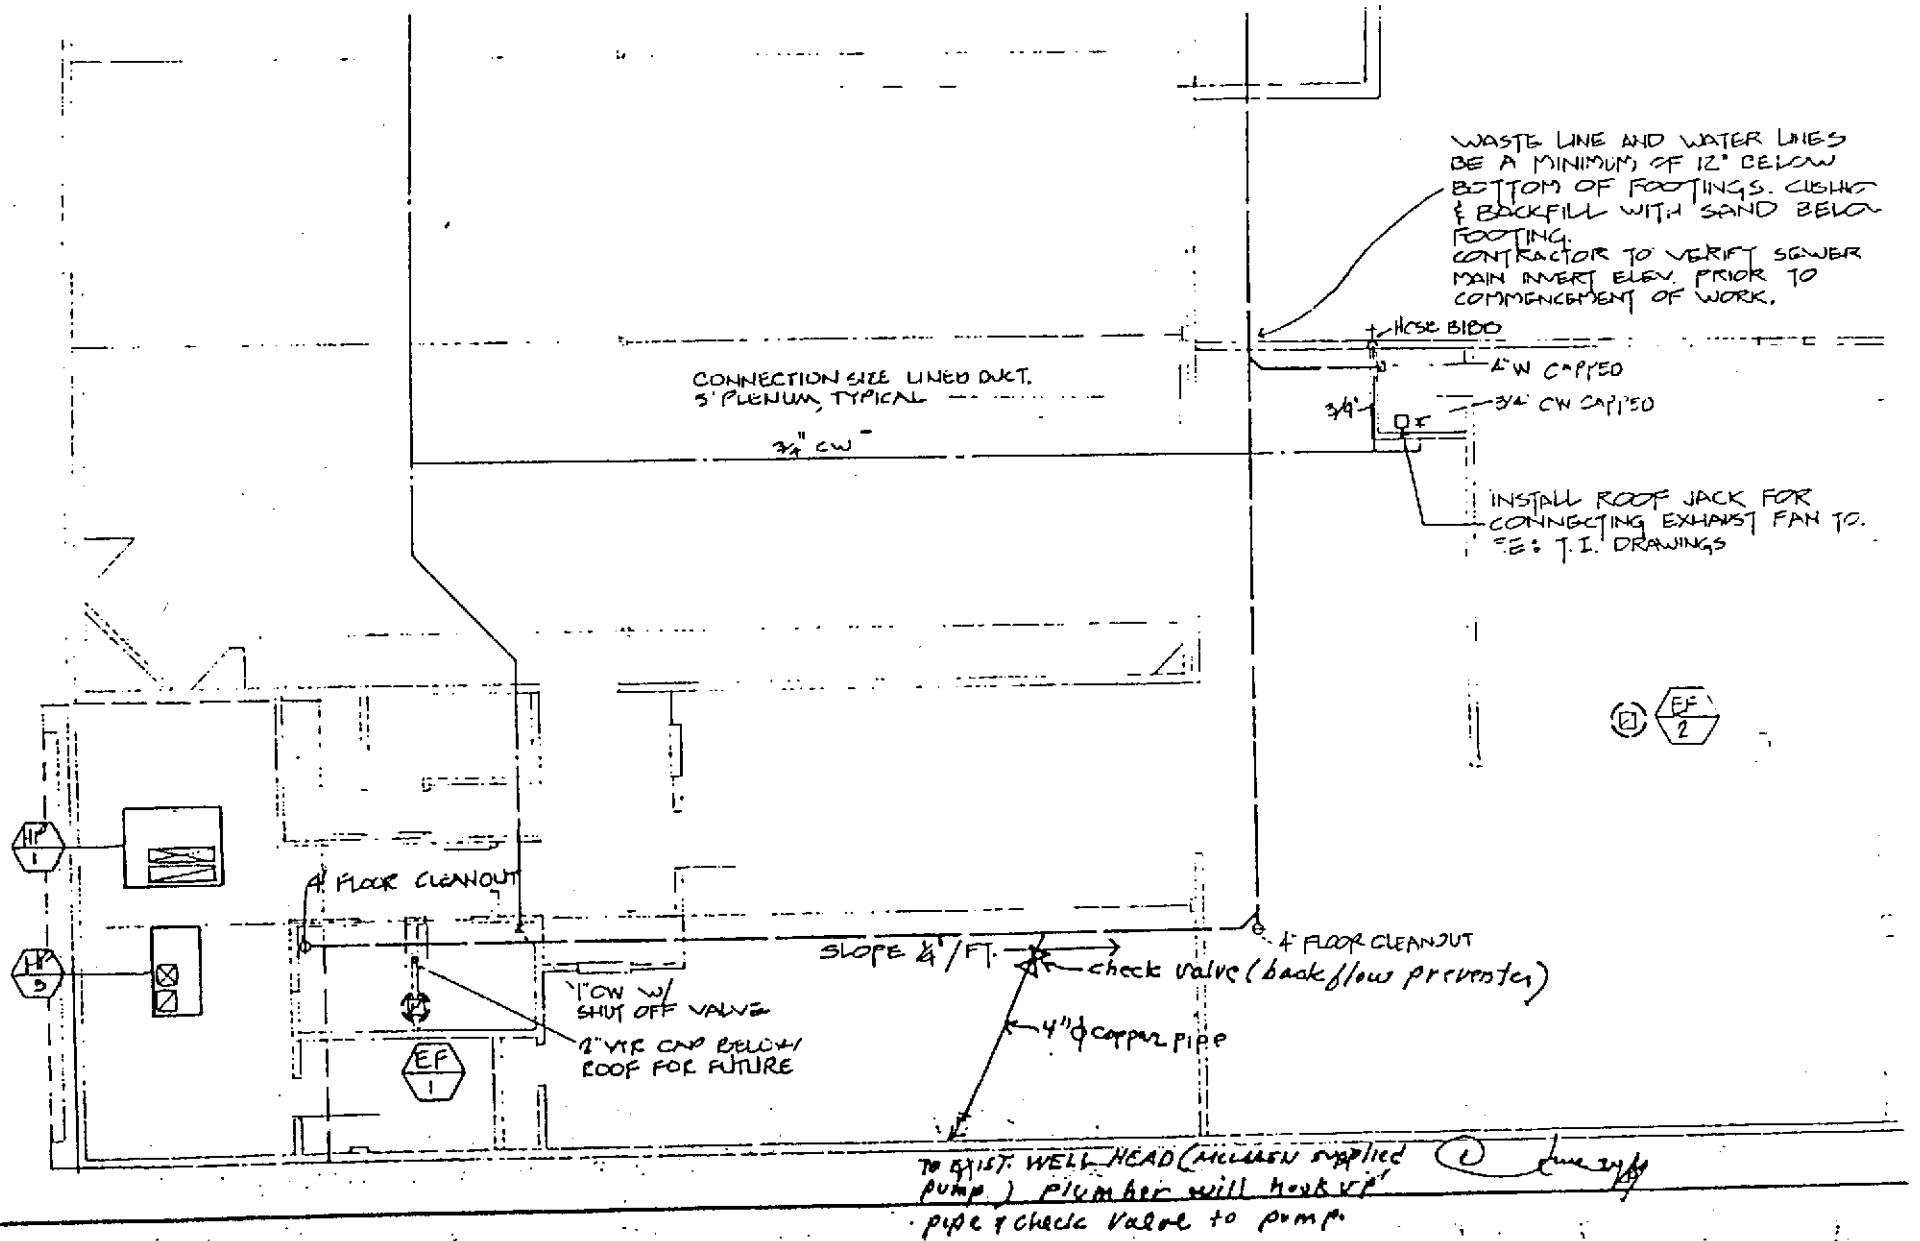 WASTE LINE AND WATER LINES
BE A MINIMUM OF 12" BELOW
BOTTOM OF FOOTINGS. CUSHIO
& BACKFILL WITH SAND BELOW
FOOTING.
CONTRACTOR TO VERIFY SEWER
MAIN INVERT ELEV. PRIOR TO
COMMENCEMENT OF WORK.
HOSE BIBB
4" W CAPPED
3/4" CW CAPPED
3/4"
CONNECTION SIZE LINED DUCT.
3' PLENUM, TYPICAL
3/4" CW
INSTALL ROOF JACK FOR
CONNECTING EXHAUST FAN TO.
E: T.I. DRAWINGS
EF
2
HP
1
4" FLOOR CLEANOUT
HP
3
SLOPE 1/4"/FT.
4" FLOOR CLEANOUT
check valve (backflow preventer)
1" CW W/
SHUT OFF VALVE
2" VTR CAP BELOW
ROOF FOR FUTURE
EF
1
4"ϕ copper pipe
TO EXIST. WELL HEAD ( supplied
pump) plumber will hook up
pipe & check valve to pump.
1
June